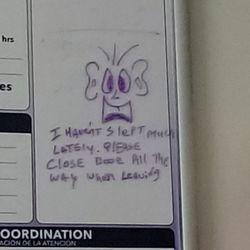 hrs
es
I HAVEN'T SLEPT MUCH
LATELY. PLEASE
CLOSE DOOR ALL THE
WAY WHEN LEAVING
OORDINATION
ACIÓN DE LA ATENCIÓN